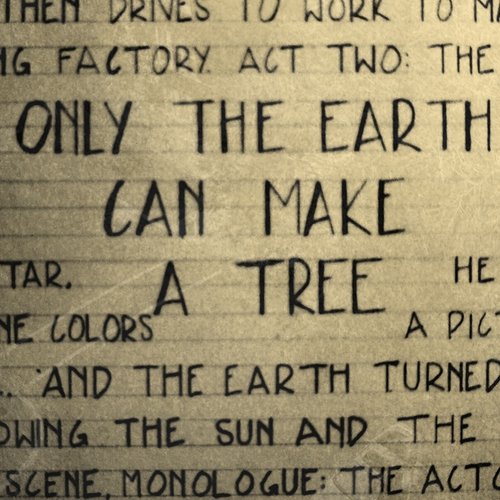 THEN DRIVES TO WORK TO
FACTORY. ACT TWO: THE
ONLY THE EARTH
CAN MAKE
TAR. A TREE HE
COLORS A
. "AND THE EARTH TURNED
THE SUN AND THE
SCENE, MONOLOGUE: THE